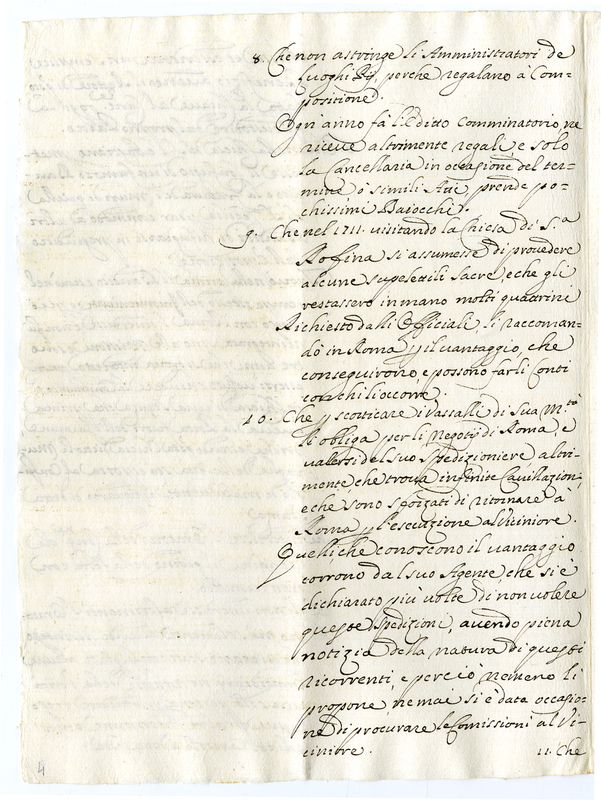 8. Che non astringe li Amministratori de
Luoghi Pij, perche regalano à Com=
positione.
Ogn'anno fà l'Editto Comminatorio, ne
riceve altrimente regali, e solo
la Cancellaria in occasione del ter=
mine, ò simili Atti prende po=
chissimi Baiocchi.
9. Che nel 1711. visitando la Chiesa di S.ta
Rofina si assumesse di provedere
alcune supelettili Sacre, e che gli
restassero in mano molti quattrini
Richiesto dalli Officiali li raccoman=
dò in Roma p il vantaggio, che
conseguirono, e possono farli Conti
con chi li occorre.
10. Che p scorticare i Vassalli di Sua M.tà
li obliga per li Negotij di Roma, e
valersi del suo Spedizioniere altri=
mente, che trova infinite Cavillazioni,
e che sono sforzati di ritornare à
Roma p l'esecuzione al Viniore.
Quelli, che conoscono il vantaggio
corrono dal suo Agente, che si è
dichiarato più volte di non volere
queste Spedizioni, avendo piena
notizia della natura di questi
ricorrenti, e perciò nemeno li
propone, ne mai si è data occasio=
ne di procurare le Comissioni al Vi=
ciniore.
11. Che
4